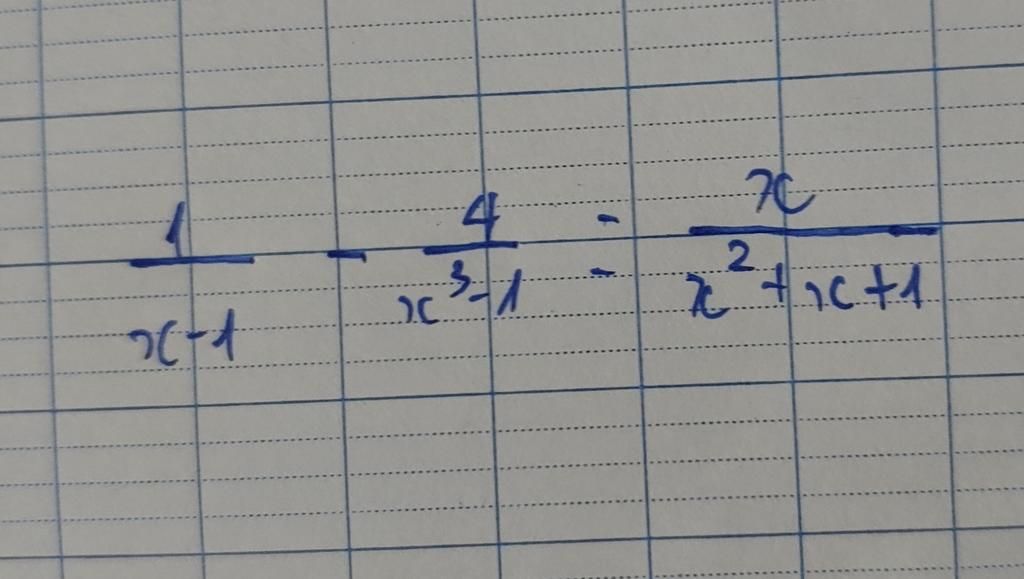 1/(x-1) - 4/(x³-1) = x/(x²+x+1)